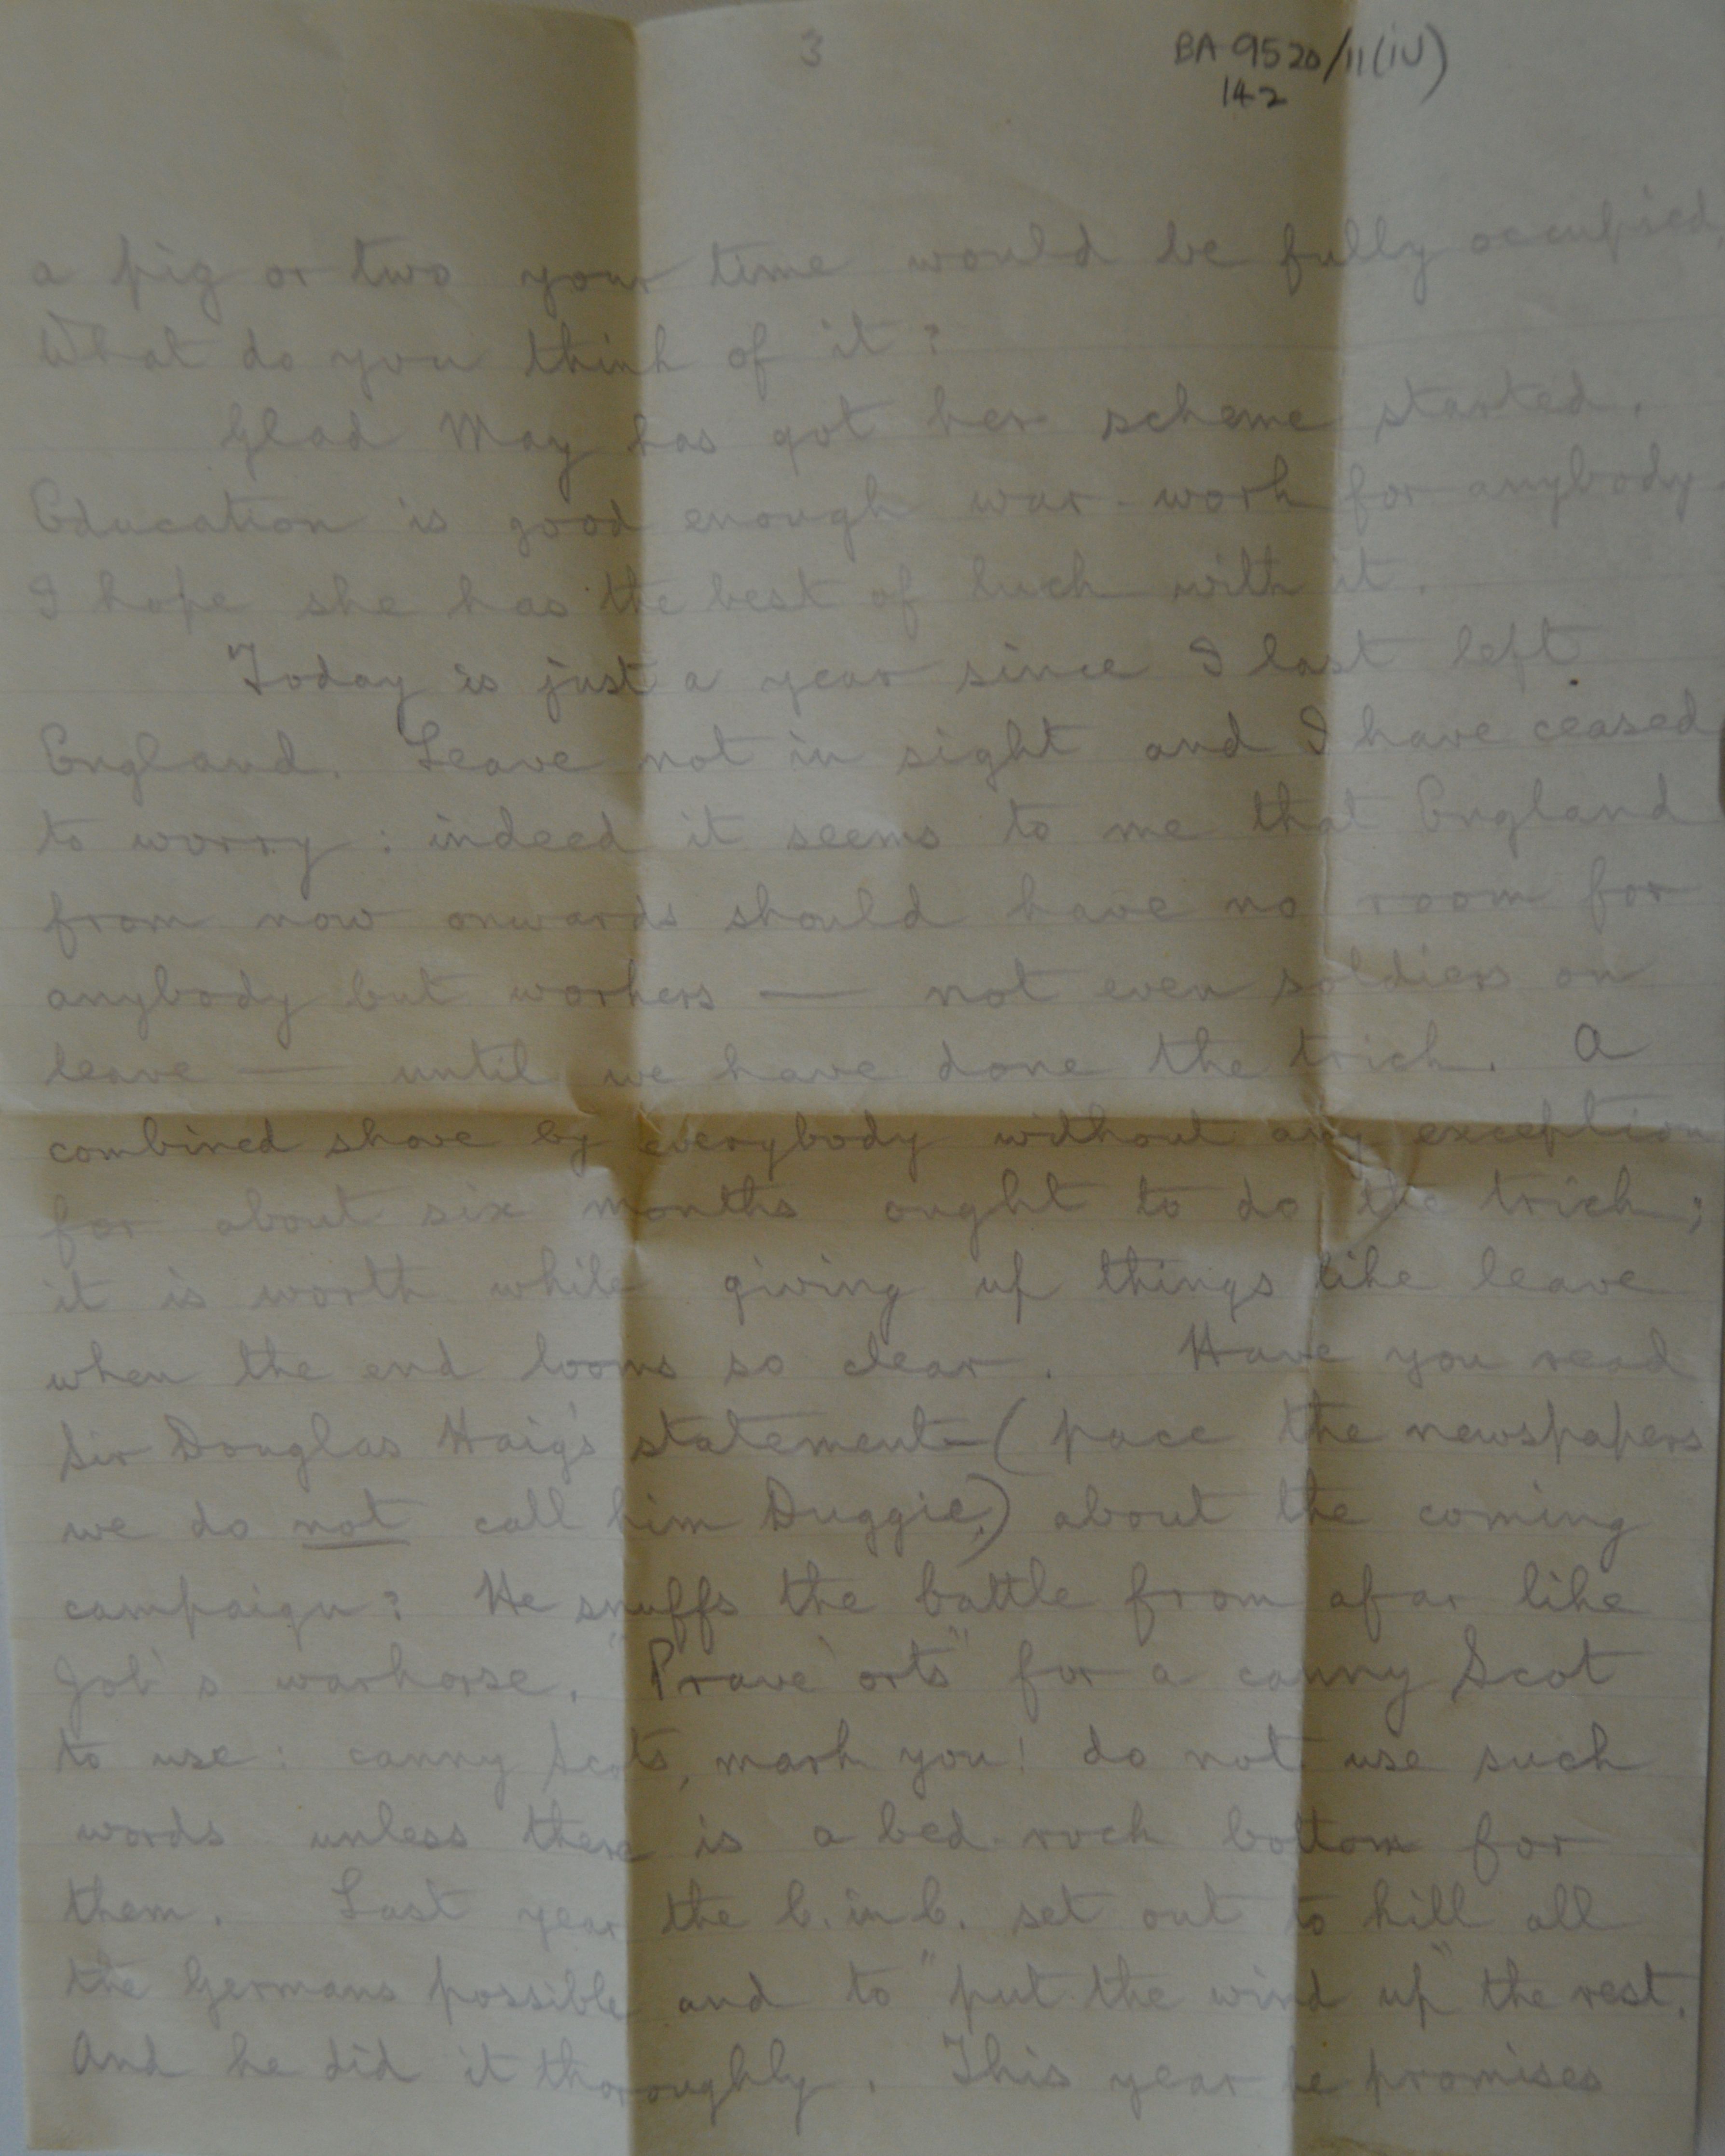 3
BA 9520/11(iv)
142
a pig or two your time would be fully occupied.
What do you think of it?
Glad May has got her scheme started.
Education is good enough war-work for anybody.
I hope she has the best of luck with it.
Today is just a year since I last left
England. Leave not in sight and I have ceased
to worry: indeed it seems to me that England
from now onwards should have no room for
anybody but workers — not even soldiers on
leave — until we have done the trick. A
combined shove by everybody without any exception
for about six months ought to do the trick;
it is worth while giving up things like leave
when the end looms so clear. Have you read
Sir Douglas Haig's statement (pace the newspapers
we do not call him Duggie,) about the coming
campaign? He snuffs the battle from afar like
Job's warhorse. "Prave 'orts" for a canny Scot
to use: canny Scots, mark you! do not use such
words unless there is a bed-rock bottom for
them. Last year the C. in C. set out to kill all
the Germans possible and to "put the wind up" the rest.
And he did it thoroughly. This year he promises